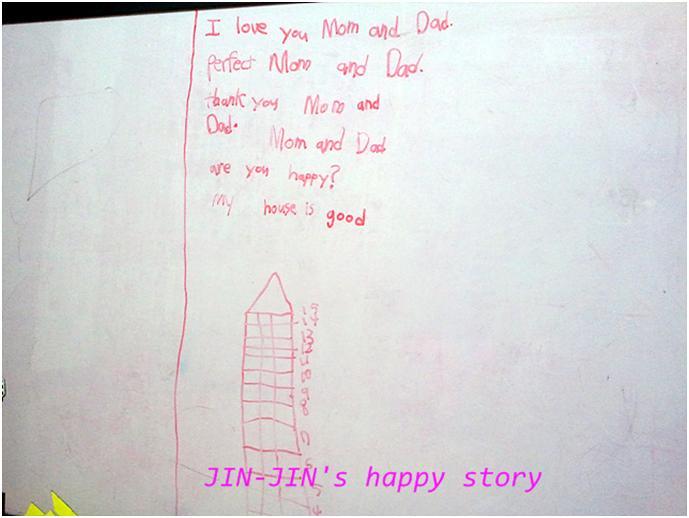 I love you Mom and Dad.
perfect Mom and Dad.
thank you Mom and
Dad. Mom and Dad
are you happy?
My house is good
JIN-JIN's happy story